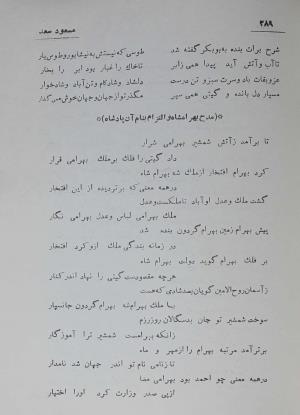 ۳۸۹
مسعود سعد
شرح برات بنده به بوبکر گفته شد
طوسی که نیستش به نیشابور و طوس یار
تا آب و آتش آید پیدا همی ز ابر
تا خاک را غبار بود ابر را بخار
عز و بقات باد و سرت سبز و تن درست
دلشاد و شادکام و تن آباد و شادخوار
بسیار دل بانده و گیتی همی سپر
مگذر تو از جهان و جهان خوش همی گذار
(مدح بهرامشاه و التزام بنام آن پادشاه)
تا برآمد ز آتش شمشیر بهرامی شرار
داد گیتی را فلک بر ملک بهرامی قرار
کرد بهرام افتخار از ملک شه بهرام شاه
در همه معنی که برتر دیده از این افتخار
گشت ملک و عدل او آباد تا ملکست و عدل
ملک بهرامی لباس و عدل بهرامی نگار
پیش بهرام زمین بهرام گردون بنده شد
در زمانه بندگی ملک از و کرد افتخار
بر فلک بهرام گوید دولت بهرام شاه
هر چه مقصودست گیتی را نهاد اندر کنار
ز آسمان روح الامین گویان بصد شادی که هست
با ملک بهرام شه بهرام گردون جانسپار
سوخت شمشیر تو جان بدسگالان روز رزم
زانکه بهرامست شمشیر ترا آموزگار
برتر آمد مرتبه بهرام را از مهر و ماه
تا ز نامی نام تو اندر جهان شد نامدار
در همه معنی چو احمد بود بهرامی مدا
از پی صدر وزارت کرد اورا اختیار